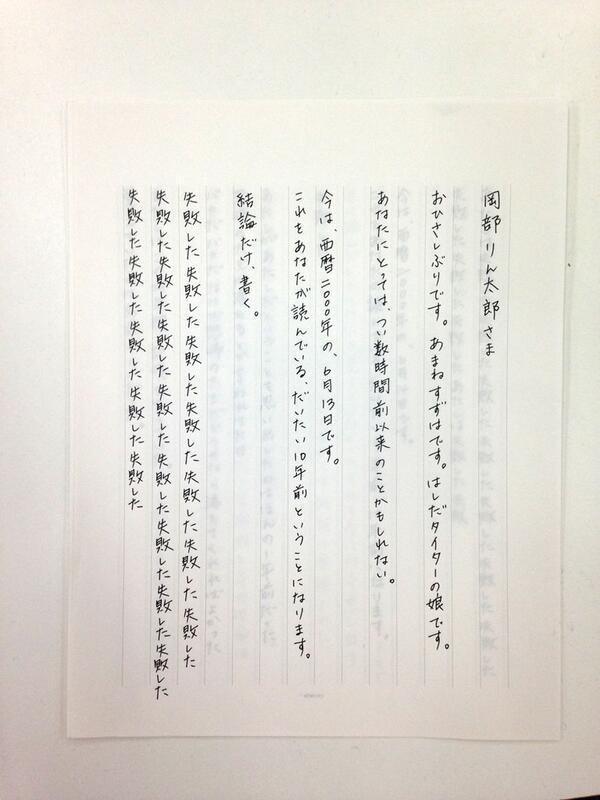 岡部りん太郎さま
おひさしぶりです。あまねすずはです。はしだタイターの娘です。
あなたにとっては、つい数時間前以来のことかもしれない。
今は、西暦二〇〇〇年の、6月13日です。
これをあなたが読んでいる、だいたい10年前ということになります。
結論だけ、書く。
失敗した失敗した失敗した失敗した失敗した失敗した失敗した失敗した
失敗した失敗した失敗した失敗した失敗した失敗した失敗した失敗した失敗した
失敗した失敗した失敗した失敗した失敗した